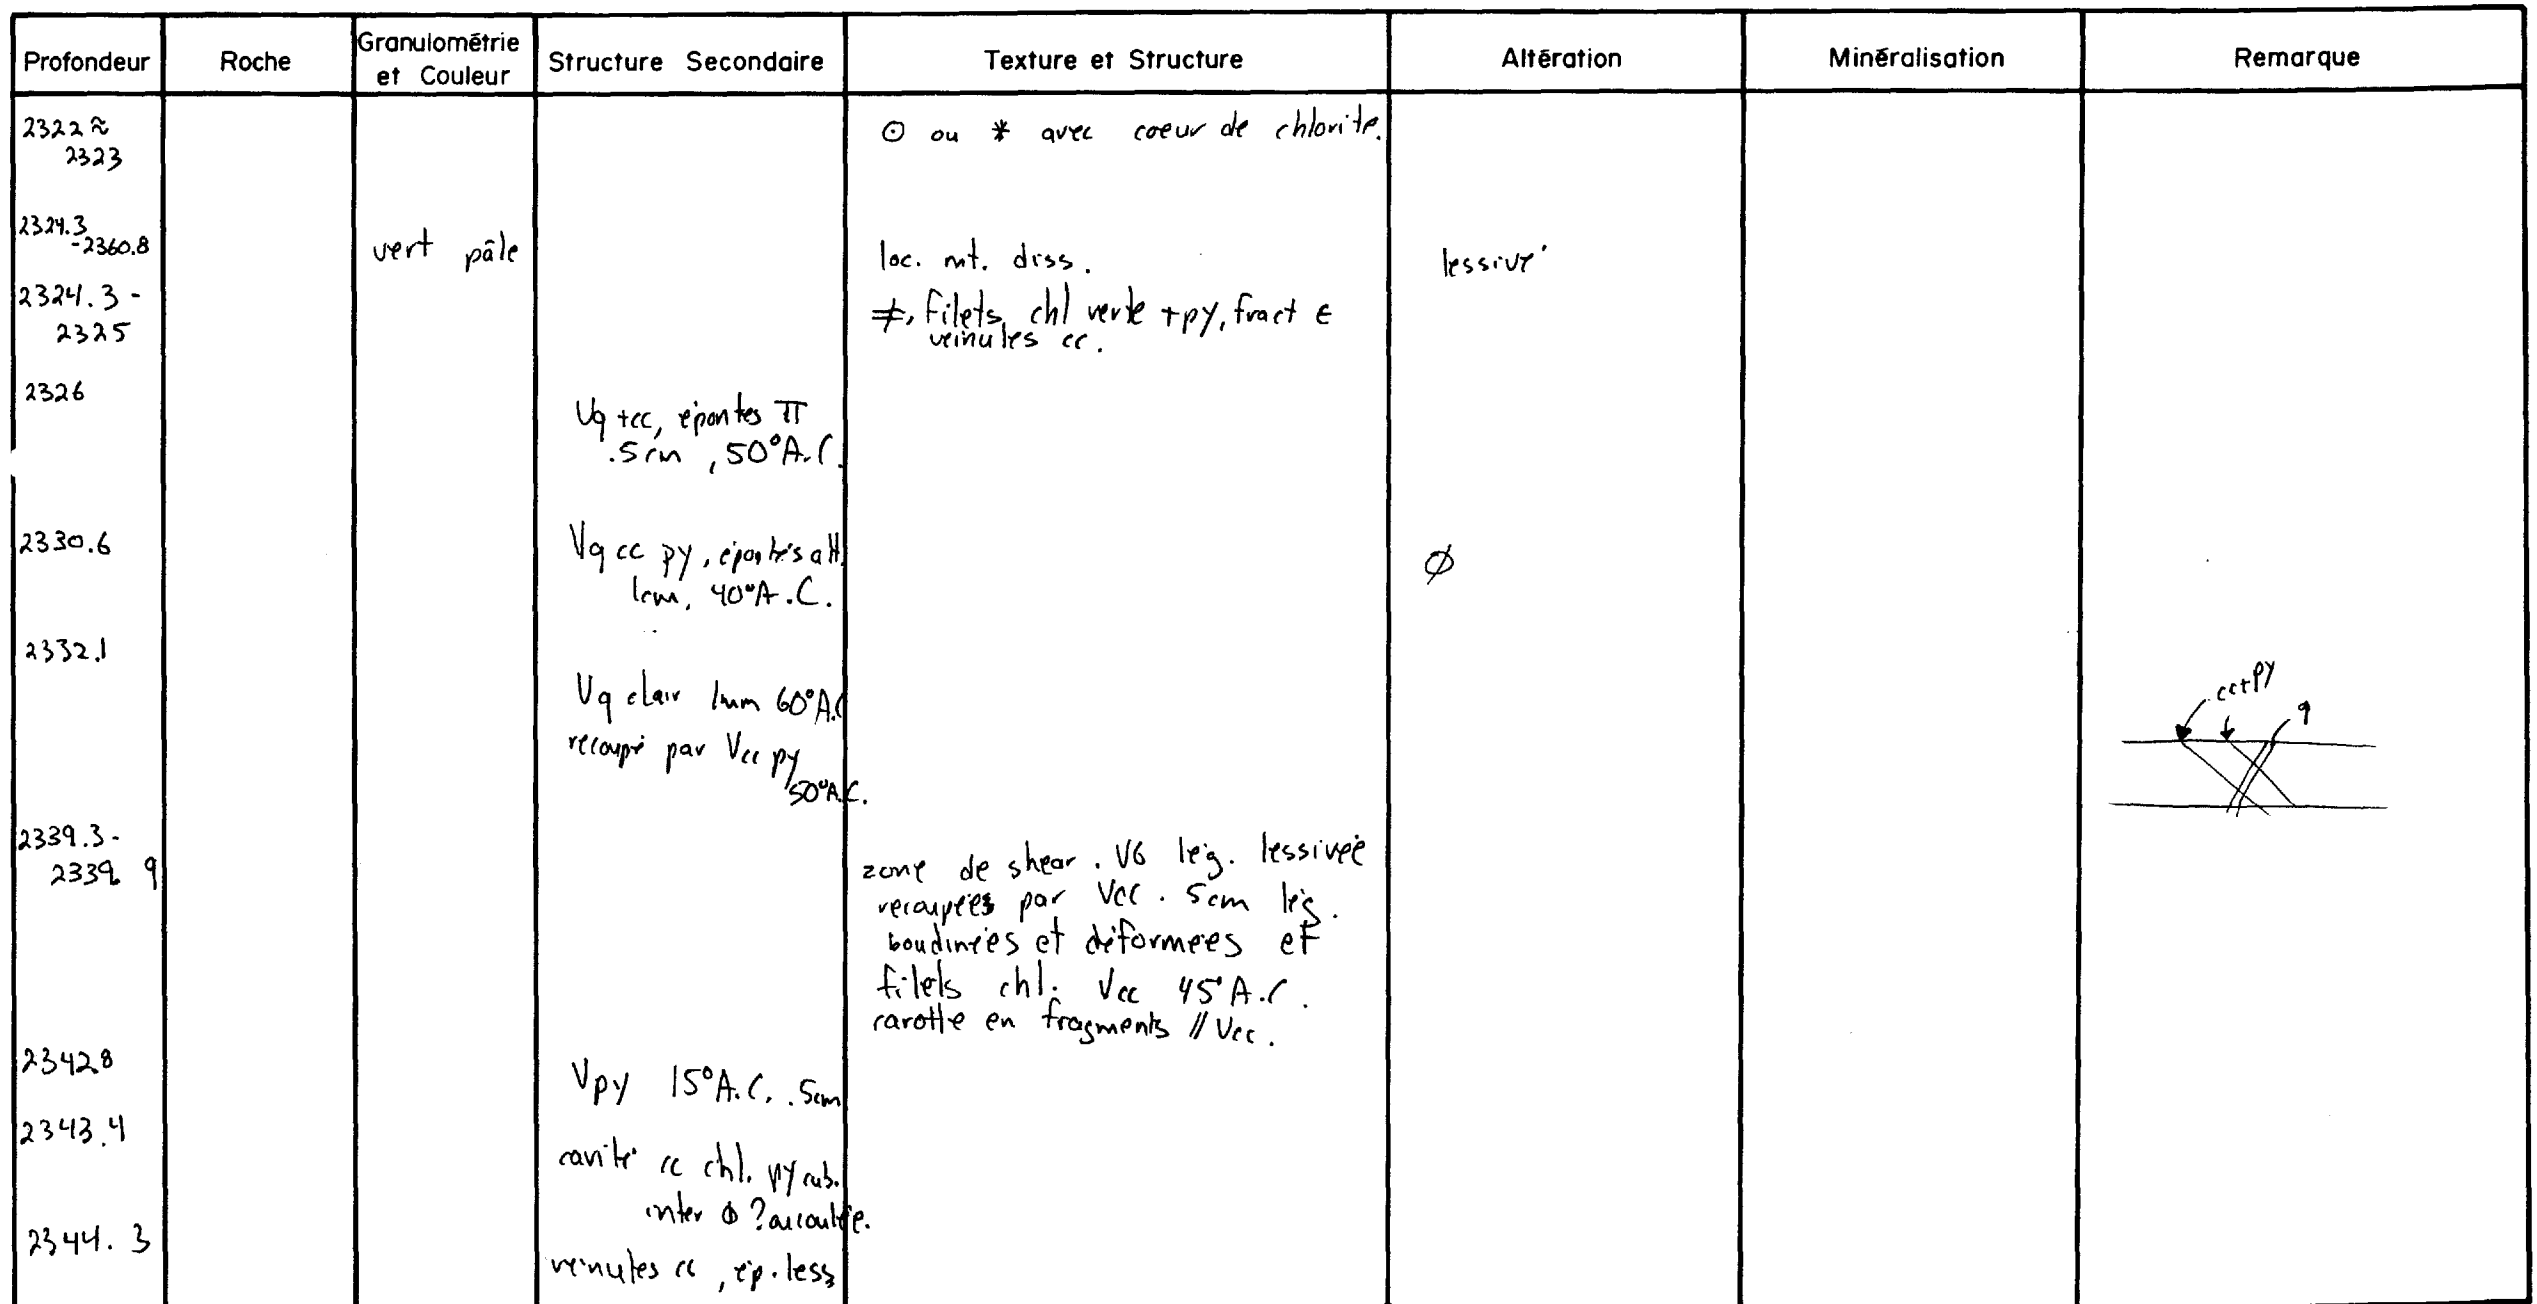 Profondeur Roche Granulométrie et Couleur Structure Secondaire Texture et Structure Altération Minéralisation Remarque
2322 ≈ ⊙ ou * avec coeur de chlorite.
2323
2324.3
-2360.8 vert pâle loc. mt. diss. lessivé
2324.3 - ≠, filets chl verte +py, fract ε
2325 veinules cc.
2326
Vq +cc, épontes π
.5cm, 50°A.C.
2330.6 Vq cc py, épontes alt. ∅
1cm, 40°A.C.
2332.1
cc+py
Vq clair 1mm 60°A.C q
recoupé par Vcc py
50°A.C.
2339.3-
2339.9 zone de shear. V6 lég. lessivée
recoupées par Vcc .5cm lég.
boudinées et déformées et
filets chl. Vcc 45°A.C.
carotte en fragments // Vcc.
2342.8
Vpy 15°A.C. .5cm
2343.4
cavité cc chl. py cub.
inter
2344.3
veinules cc, ép. less